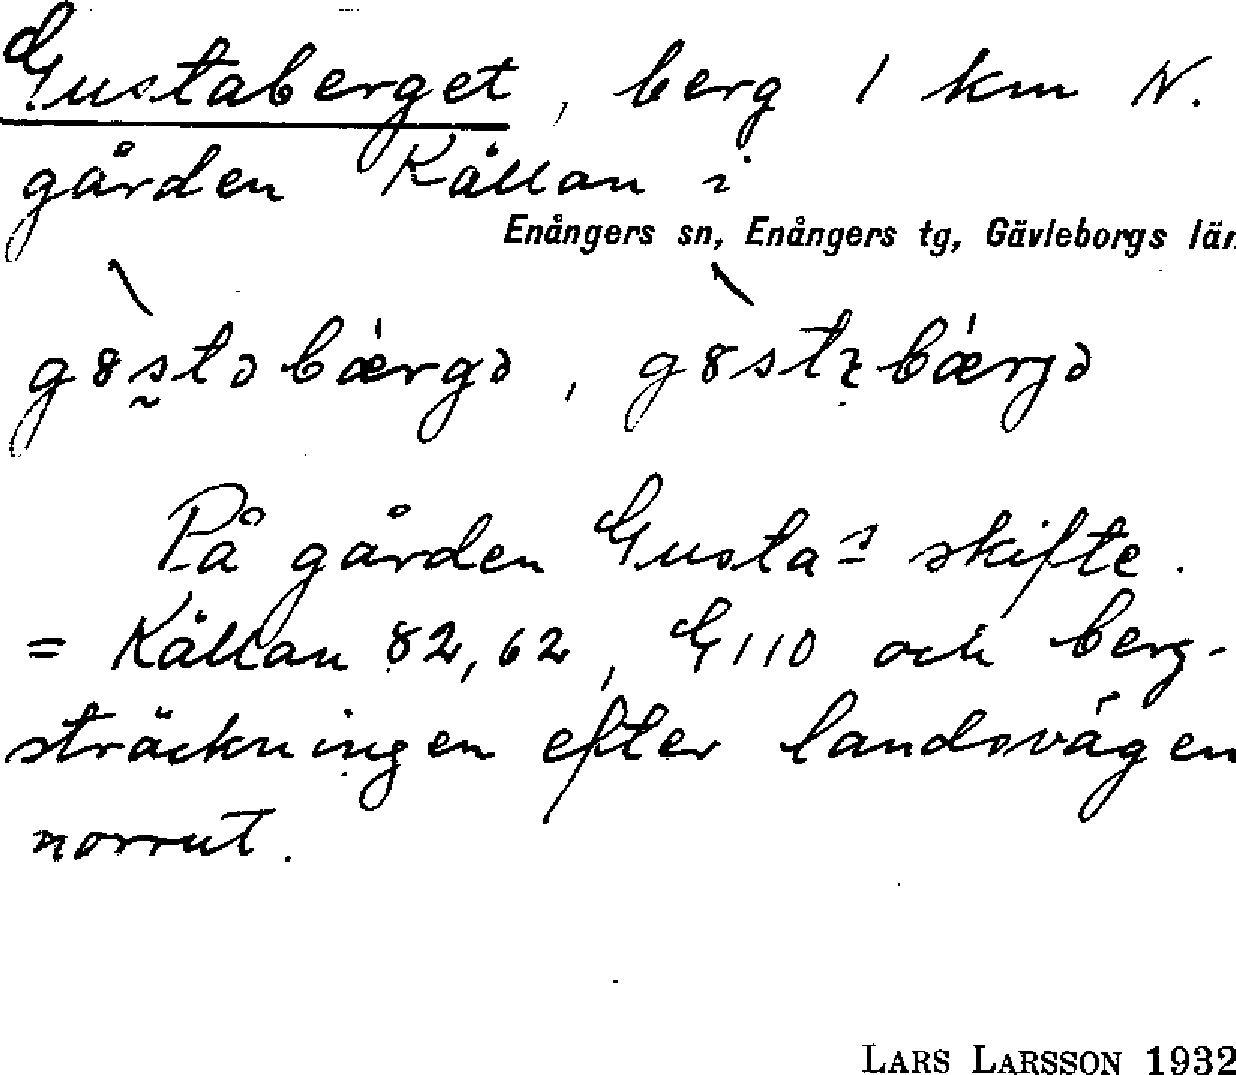 Gustaberget, berg 1 km N.
gården Källan i
Enångers sn, Enångers tg, Gävleborgs län
På gården Gusta-s skifte.
= Källan 82,62, G110 och berg-
sträckningen efter landsvägen
norrut.
LARS LARSSON 1932